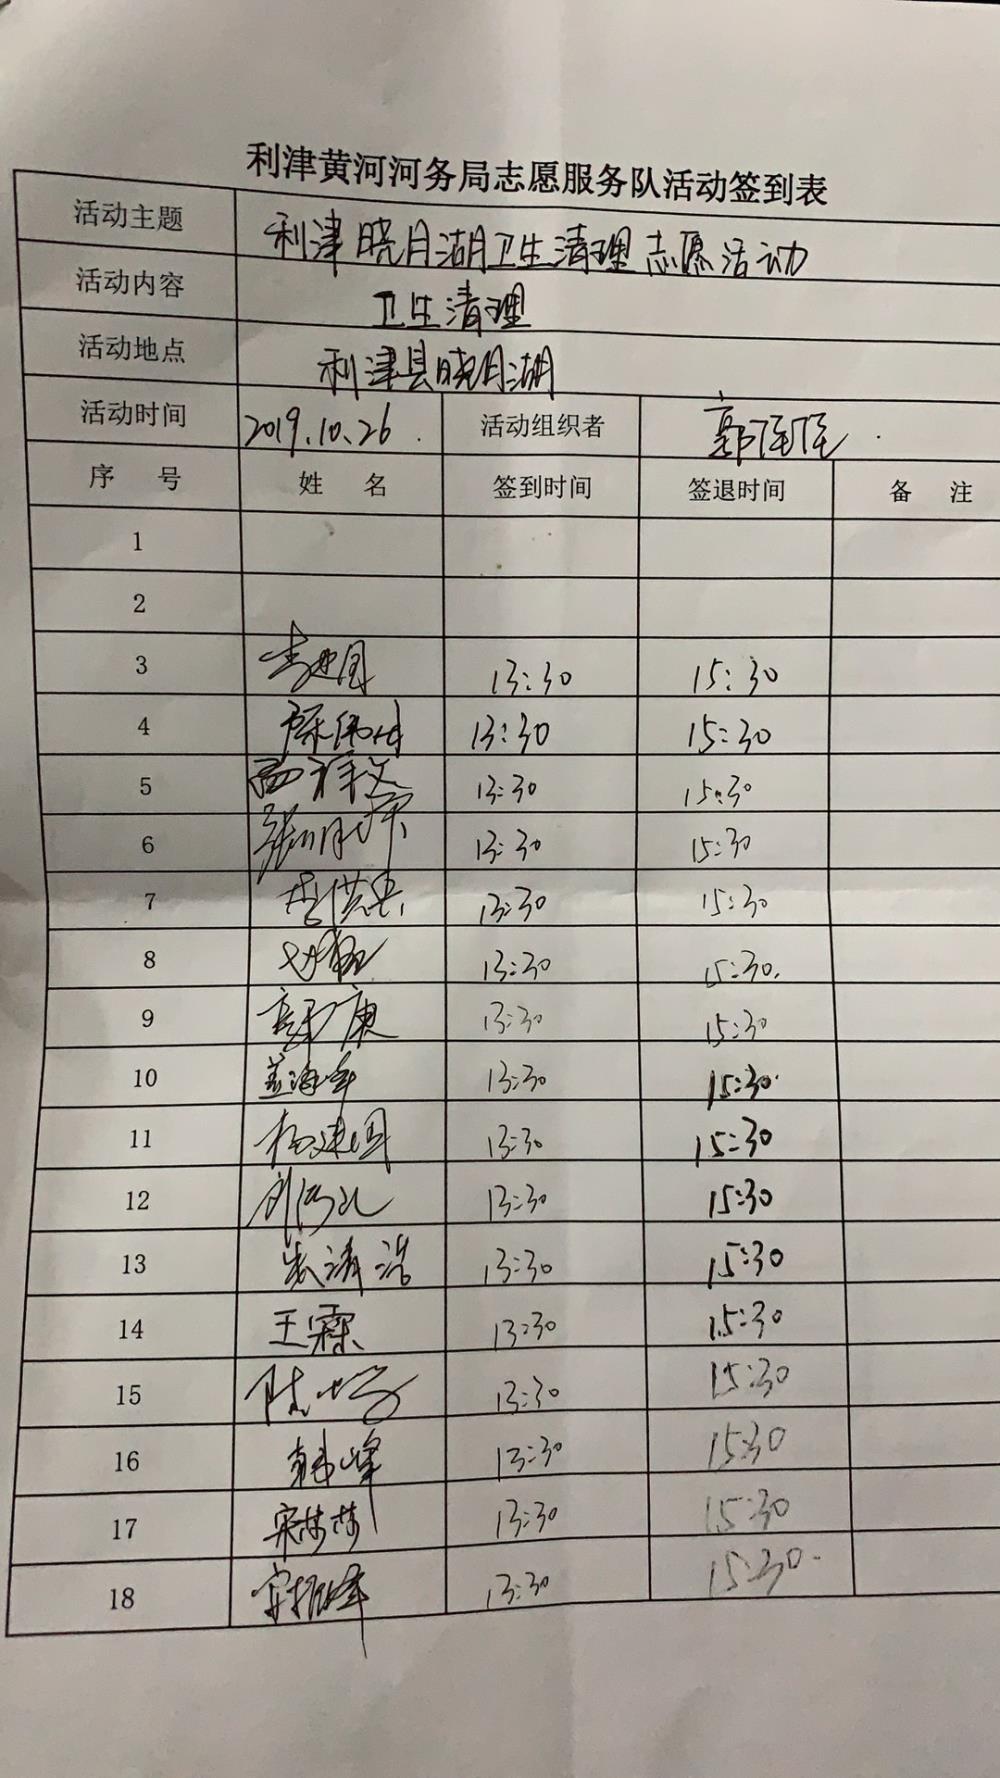 利津黄河河务局志愿服务队活动签到表
活动主题 利津晓月湖卫生清理志愿活动
活动内容 卫生清理
活动地点 利津县晓月湖
活动时间 2019.10.26. 活动组织者 郭
序 号 姓 名 签到时间 签退时间 备 注
1
2
3 13:30 15:30
4 13:30 15:30
5 13:30 15:30
6 13:30 15:30
7 13:30 15:30
8 13:30 15:30.
9 13:30 15:30
10 盖海峰 13:30 15:30.
11 杨建国 13:30 15:30
12 13:30 15:30
13 清浩 13:30 15:30
14 王霖 13:30 15:30
15 13:30 15:30
16 韩峰 13:30 15:30
17 宋莎莎 13:30 15:30
18 宋振峰 13:30 15:30.